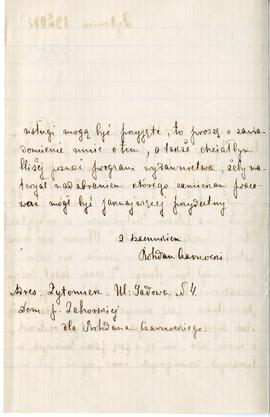 usługi mogą być przyjęte, to proszę o zawia-
domienie mnie o tem, a także chciałbym
bliżej poznać program wydawnictwa, żeby ma-
teryał nad zbraniem którego zamierzam praco-
wać mógł być jaknajwięcej przydatny
Z szacunkiem
Bohdan Czarnocki.
Adres. Żytomierz. Ul: Sadowa № 4.
Dom p. Zahorskiej
dla Bohdana Czarnockiego.